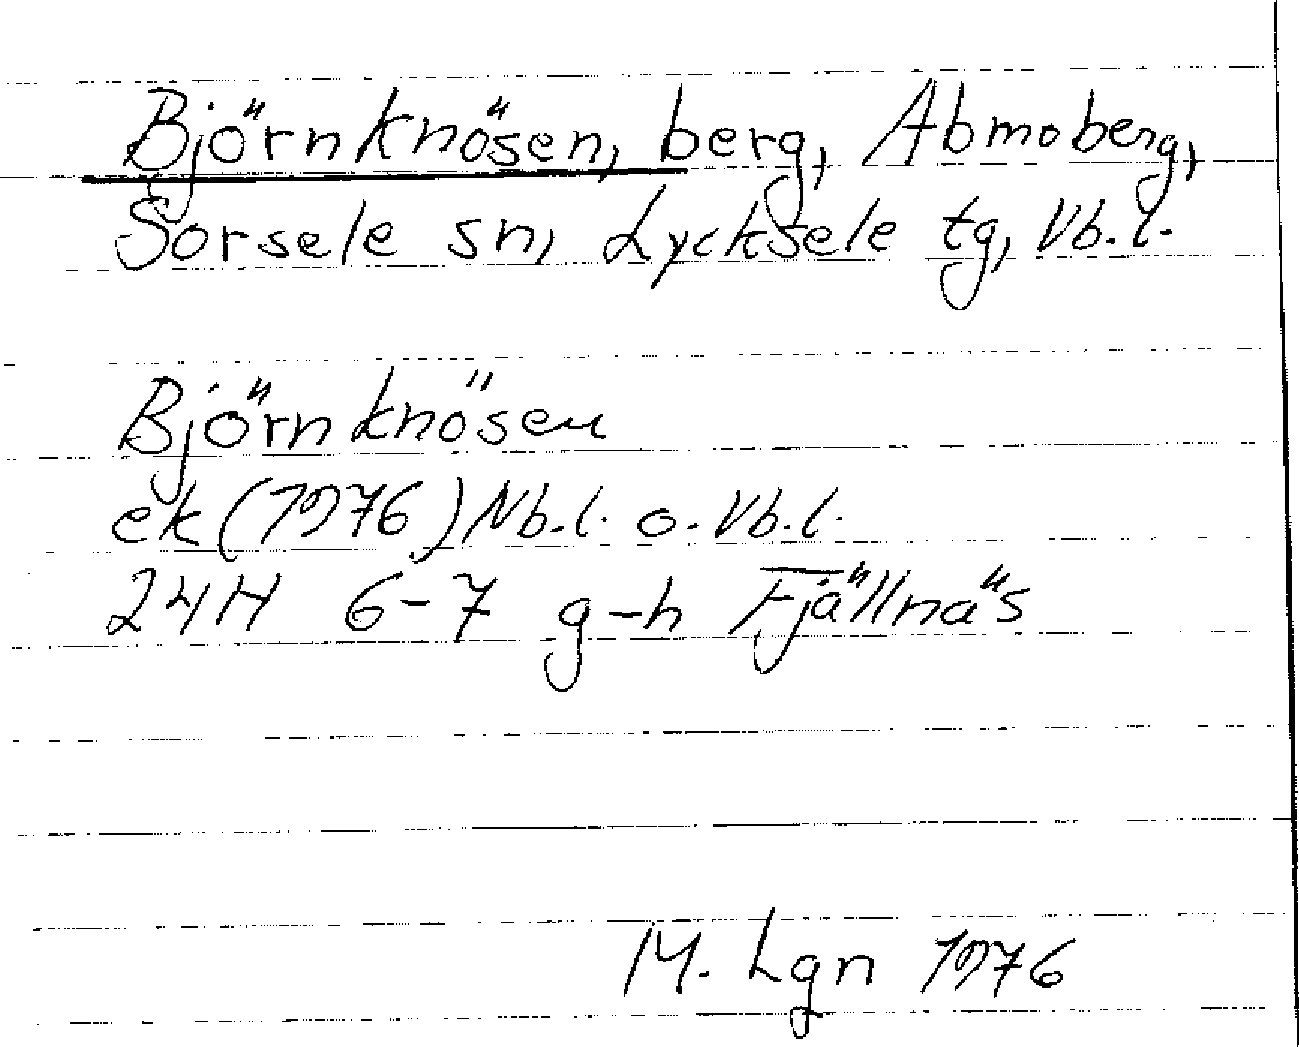 Björnknösen, berg, Abmoberg,
Sorsele sn, Lycksele tg, Vb.l.
Björnknösen
ek (1976) Nb.l. o. Vb.l.
24H 6-7 g-h Fjällnäs
M. Lgn 1976